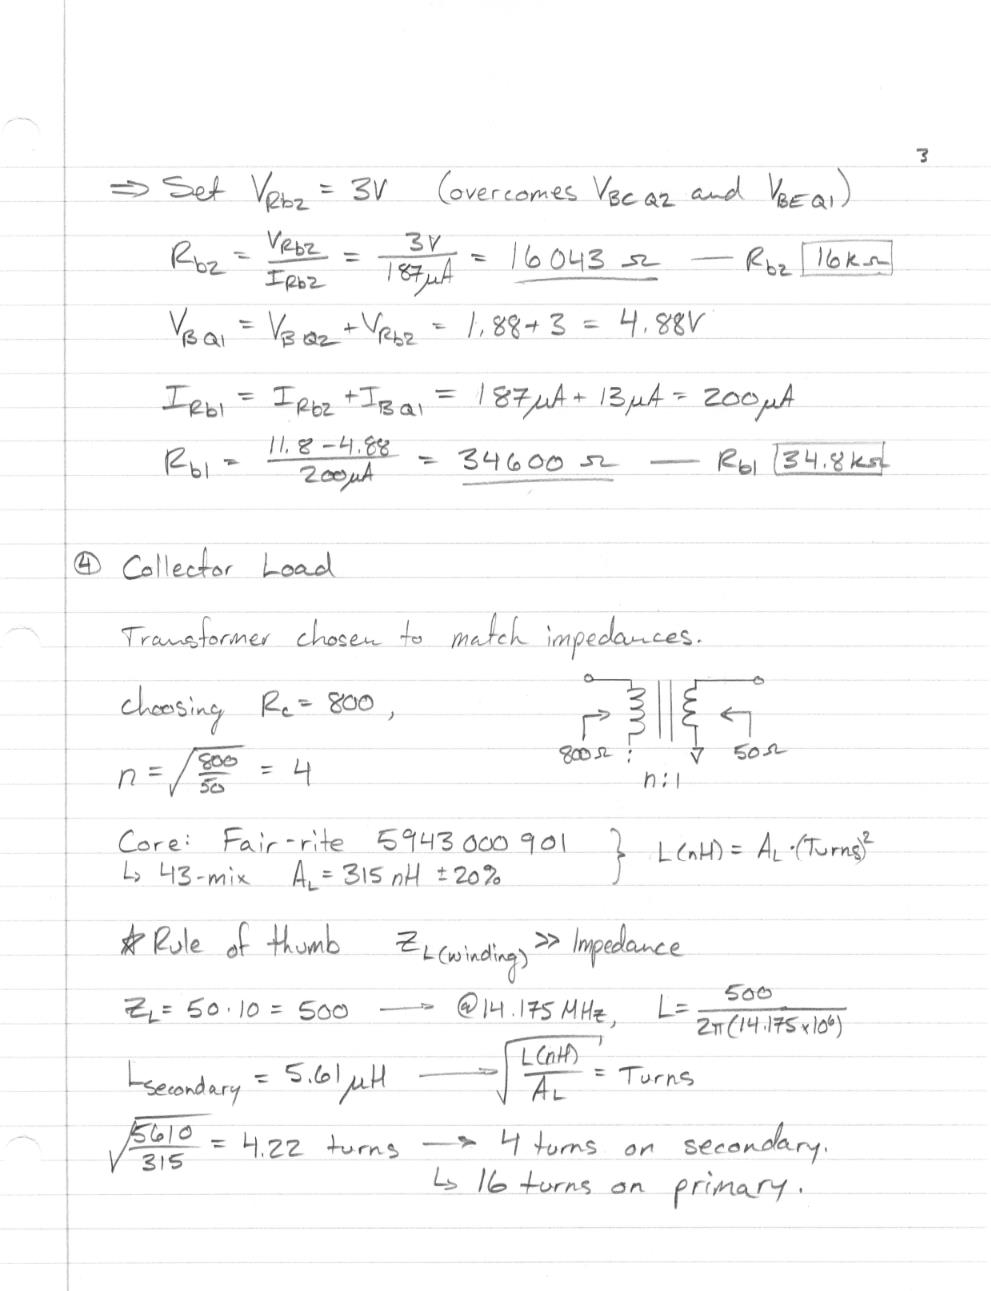 3
⇒ Set V_Rb2 = 3V (overcomes V_BC Q2 and V_BE Q1)
R_b2 = V_Rb2 / I_Rb2 = 3V / 187μA = 16043 Ω — R_b2 16kΩ
V_B Q1 = V_B Q2 + V_Rb2 = 1.88 + 3 = 4.88V
I_Rb1 = I_Rb2 + I_B Q1 = 187μA + 13μA = 200μA
R_b1 = 11.8 - 4.88 / 200μA = 34600 Ω — R_b1 34.8kΩ
④ Collector Load
Transformer chosen to match impedances.
choosing R_c = 800,
n = √(800/50) = 4
800Ω 50Ω
n:1
Core: Fair-rite 5943000901 } L(nH) = A_L · (Turns)²
↳ 43-mix A_L = 315 nH ± 20%
☆ Rule of thumb Z_L(winding) >> Impedance
Z_L = 50 · 10 = 500 → @ 14.175 MHz, L = 500 / 2π(14.175 × 10⁶)
L_secondary = 5.61 μH → √(L(nH) / A_L) = Turns
√(5610/315) = 4.22 turns → 4 turns on secondary.
↳ 16 turns on primary.